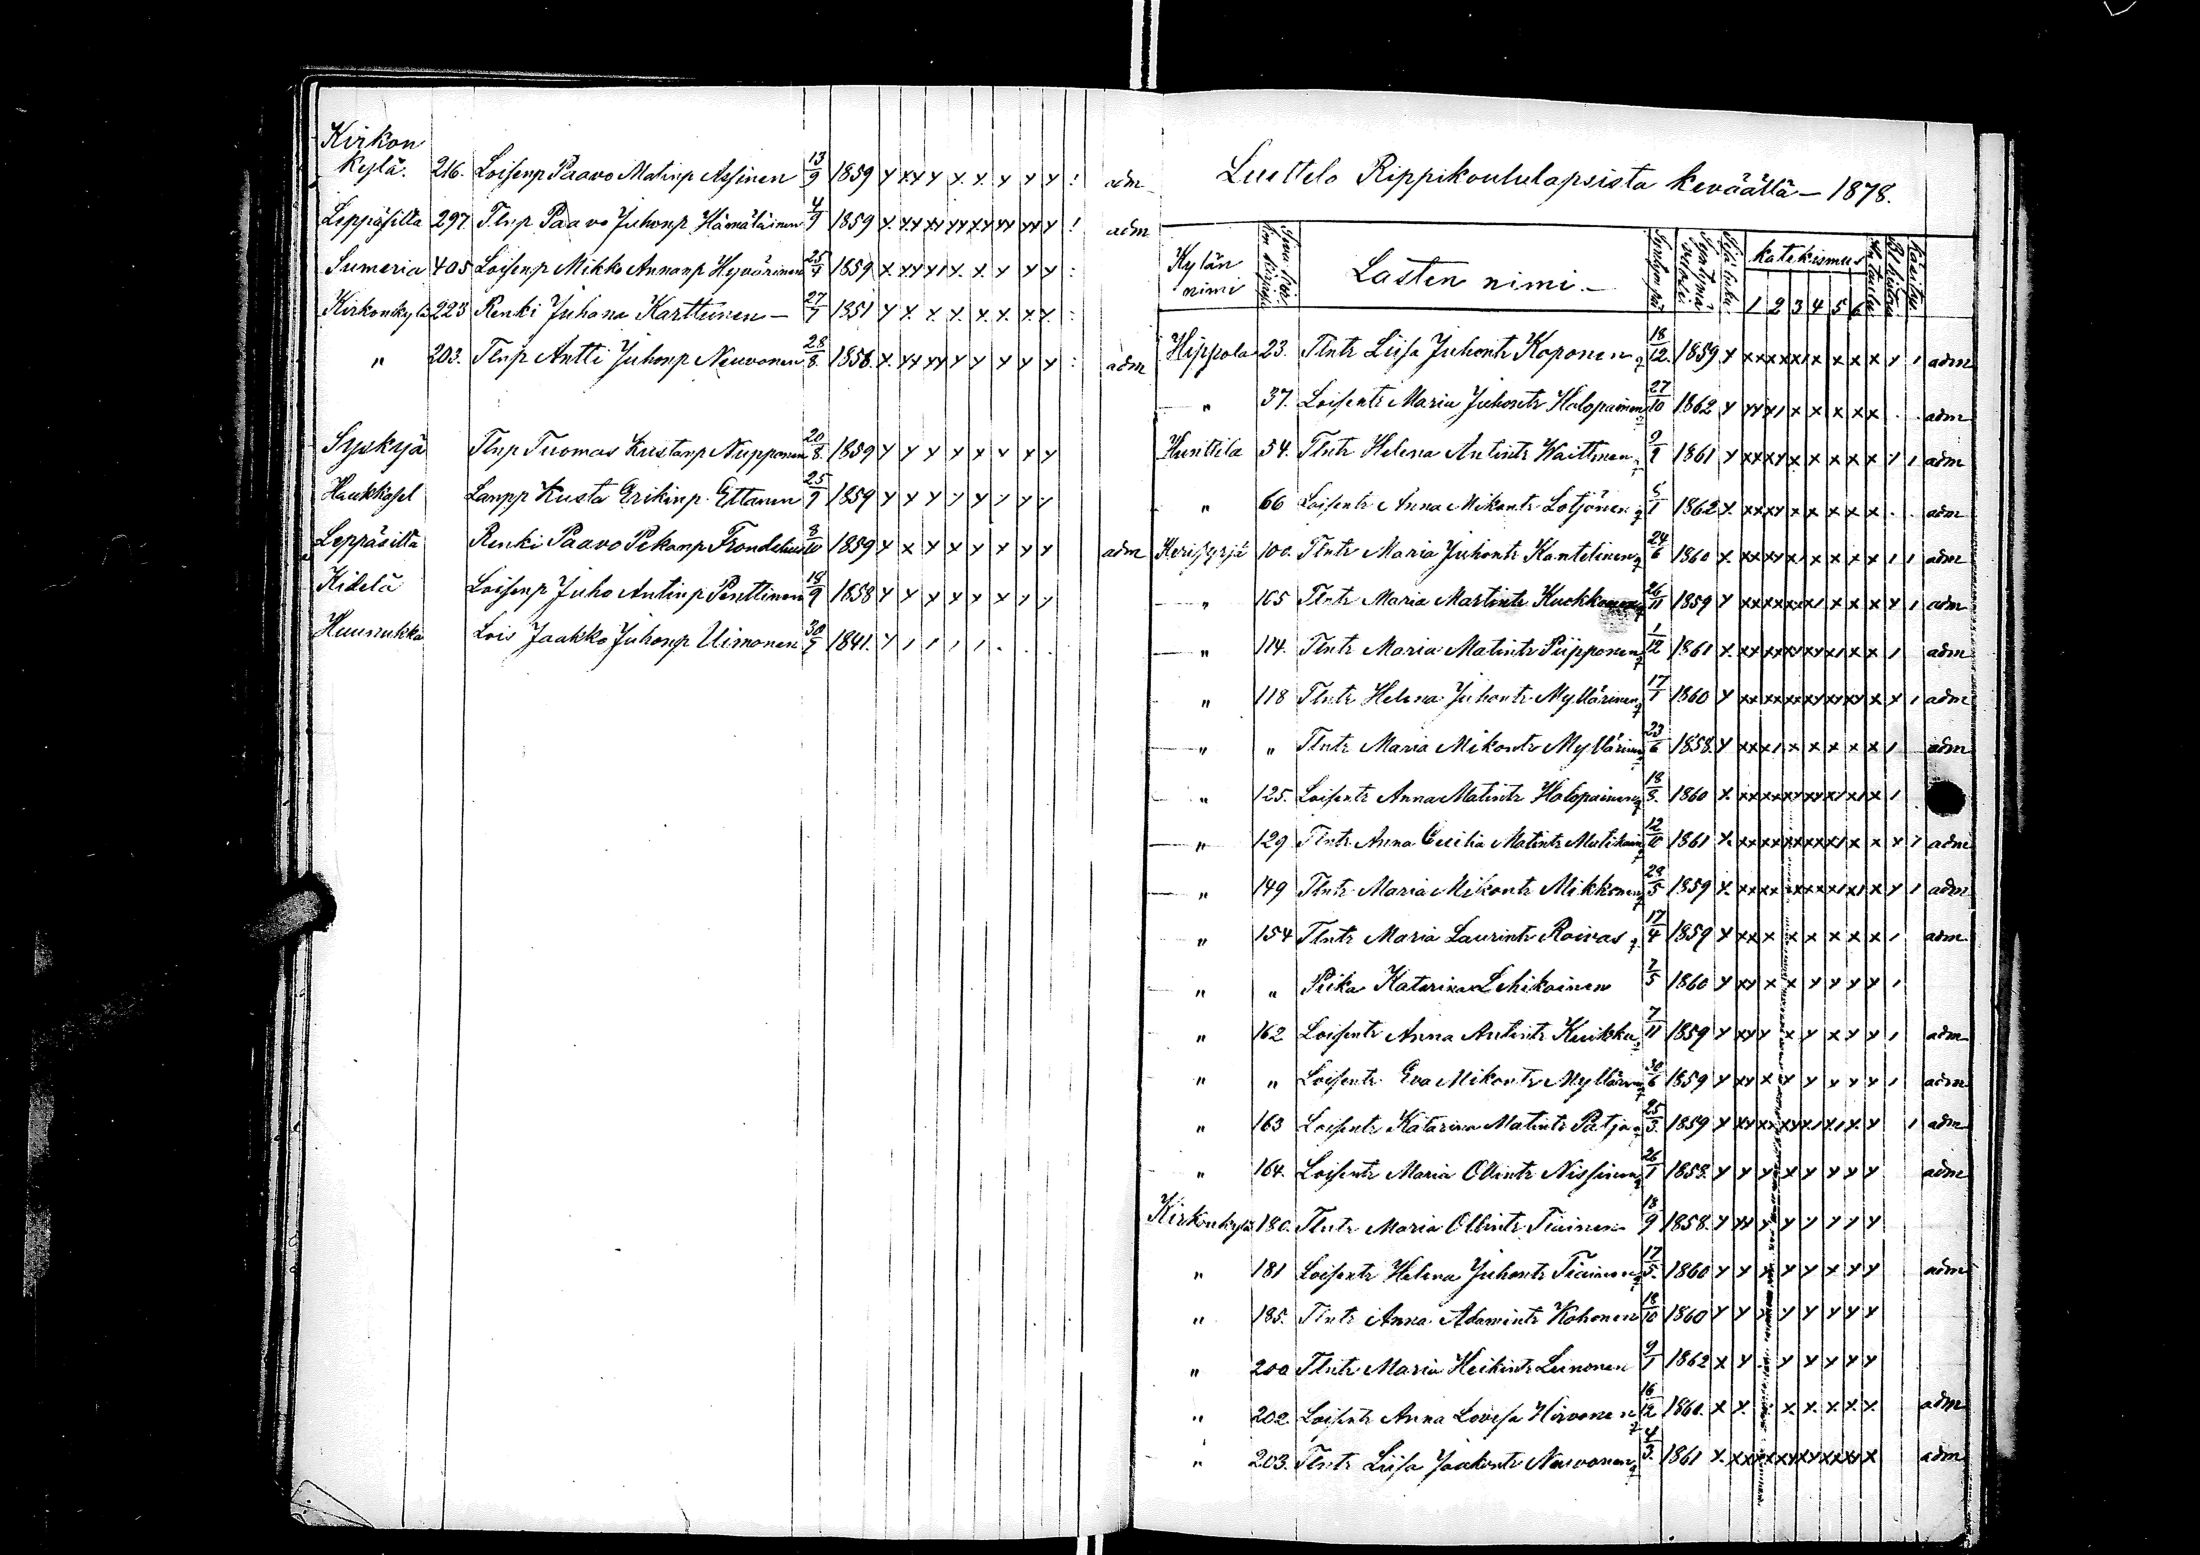 Kirkon
kylä. 216. Loisenp Paavo Matinp Assinen 13/9 1859 adm
Leppäsilta 297 Tlnp Paavo Juhonp Hämäläinen 4/9 1859 adm
Sumeria 405 Loisenp Mikko Annanp Hyvärinen 25/4 1859
Kirkonkylä 223 Renki Juhana Karttunen — 27/7 1851
" 203. Tlnp Antti Juhonp Neuvonen 28/8. 1858. adm
Syskyjä Tlnp Tuomas Kustanp Nupponen 20/8. 1859
Haukkasel Lampp Kusta Erikinp. Ettanen 25/7 1859
Leppäsilta Renki Paavo Pekanp Frondelius 8/10 1859 adm
Kidelä Loisenp Juho Antinp Penttinen 18/9 1858
Huunukka Lois Jaakko Juhonp Uimonen 30/7 1841.
Luettelo Rippikoululapsista keväällä — 1878.
Kylän nimi Lasten nimi. — Sisä luku katekismus
1 2 3 4 5 6
Hippola 23. Tlntr Liisa Juhontr Koponen 18/12. 1859 adm
" 37. Loisentr Maria Juhontr Holopainen 27/10 1862 adm
Hunttila 54. Tlntr Helena Antintr Waittinen 9/9 1861 adm
" 66 Loisentr Anna Mikontr Lötjönen 5/1 1862 adm
Kerisyrjä 100. Tlntr Maria Juhontr Kantelinen 24/6 1860 adm
" 105 Tlntr Maria Martintr Kuokkanen 26/11 1859 adm
" 114. Tlntr Maria Matintr Piipponen 1/12 1861 adm
" 118 Tlntr Helena Juhontr Myllärinen 17/1 1860 adm
" " Tlntr Maria Mikontr Myllärinen 23/6 1858. adm
" 125. Loisentr Anna Matintr Holopainen 18/8. 1860
" 129 Tlntr Anna Cecilia Matintr Mutikain 12/10 1861 adm
" 149 Tlntr Maria Mikontr Mikkonen 28/5 1859 adm
" 154 Tlntr Maria Laurintr Roivas 17/4 1859 adm
" " Piika Katarina Lehikoinen 7/5 1860
" 162 Loisentr Anna Antintr Kuikka 7/11 1859 adm
" " Loisentr Eva Mikontr Myllärin 30/6 1859 adm
" 163 Loisentr Katarina Matintr Patja 25/3. 1859 adm
" 164. Loisentr Maria Ollintr Nissinen 26/1 1858. adm
Kirkonkylä 180. Tlntr Maria Ollintr Tiainen 18/9 1858.
" 181 Loisentr Helena Juhontr Tiainen 17/5. 1860 adm
" 185. Tlntr Anna Adamintr Kohonen 18/10 1860
" 200 Tlntr Maria Heikintr Leinonen 9/1 1862
" 202. Loisentr Anna Lovisa Hirvonen 16/12 1860. adm
" 203. Tlntr Liisa Jaakontr Neuvonen 4/3. 1861 adm